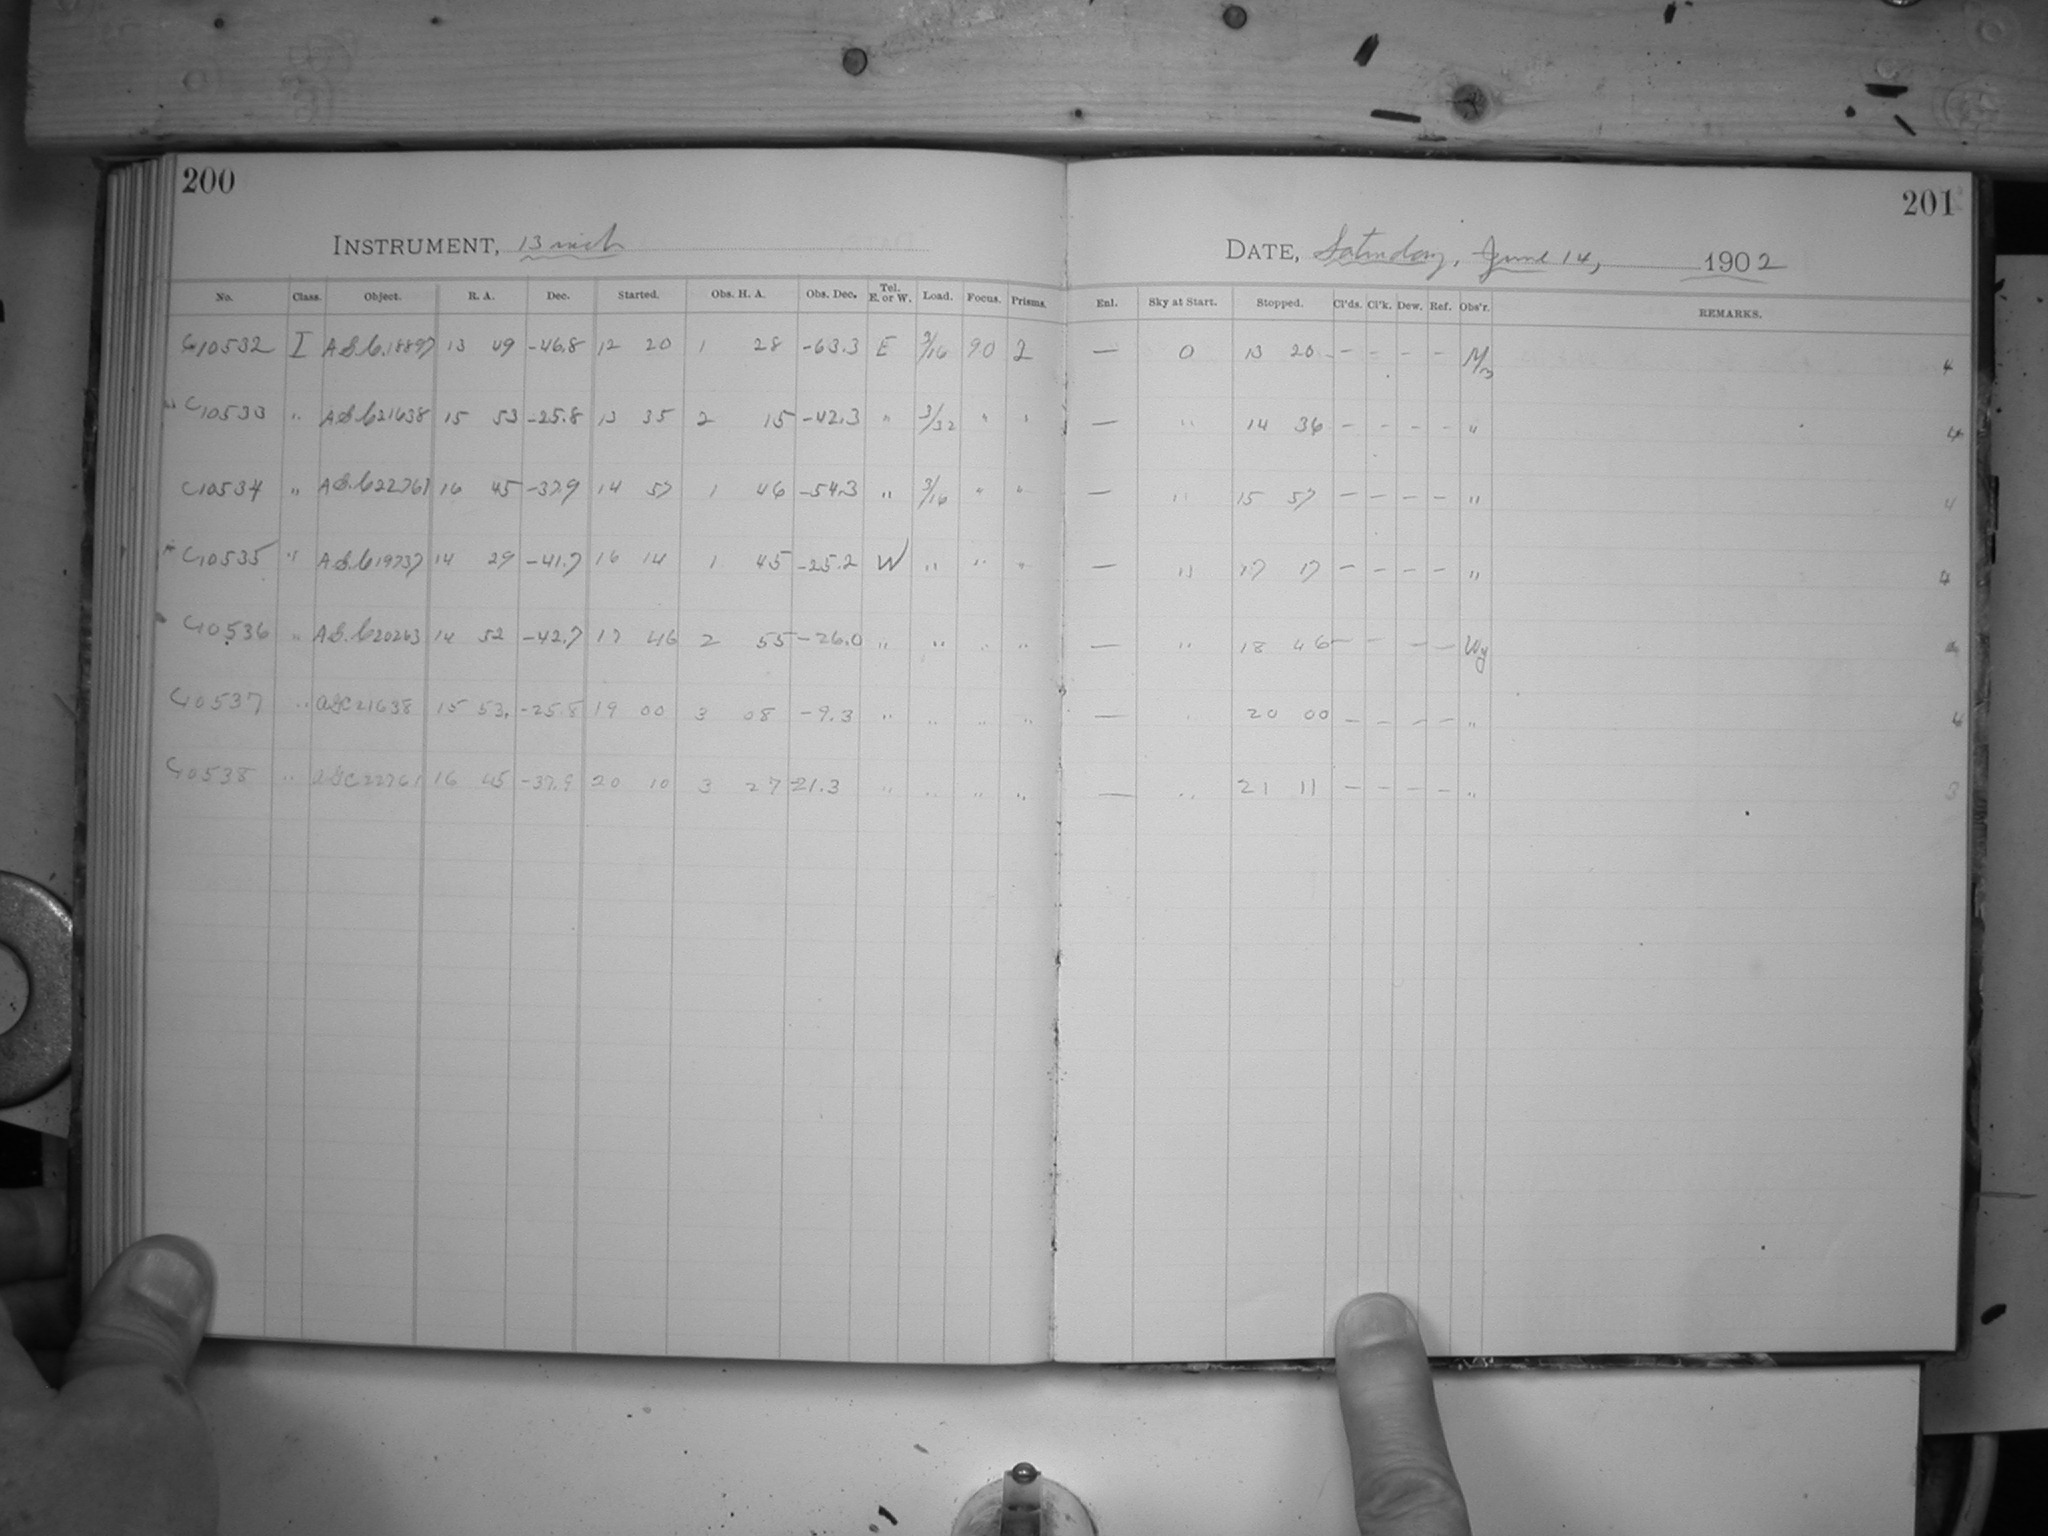 200
201
INSTRUMENT, 13 inch
DATE, Saturday, June 14, 1902
No. Class. Object. R. A. Dec. Started. Obs. H. A. Obs. Dec. Tel. E. or W. Load. Focus. Prisms.
Enl. Sky at Start. Stopped. Cl'ds. Cl'k. Dew. Ref. Obs'r. REMARKS.
C10532 I A.G.C.18897 13 49 -46.8 12 20 1 28 -63.3 E 3/16 90 2 — 0 13 20 - - - - 4
C10533 " A.G.C.21638 15 53 -25.8 13 35 2 15 -42.3 " 3/32 " " — " 14 36 - - - - " 4
C10534 " A.G.C.22761 16 45 -37.9 14 57 1 46 -54.3 " 3/16 " " — " 15 57 - - - - " 4
C10535 " A.G.C.19737 14 29 -41.7 16 14 1 45 -25.2 W " " " — " 17 17 - - - - " 4
C10536 " A.G.C.20263 14 52 -42.7 17 46 2 55 -26.0 " " " " — " 18 46 - - - - Wy
C10537 " AGC21638 15 53 -25.8 19 00 3 08 -9.3 " " " " — " 20 00 - - - - " 4
C10538 " AGC22761 16 45 -37.9 20 10 3 27 -21.3 " " " " — " 21 11 - - - - " 3